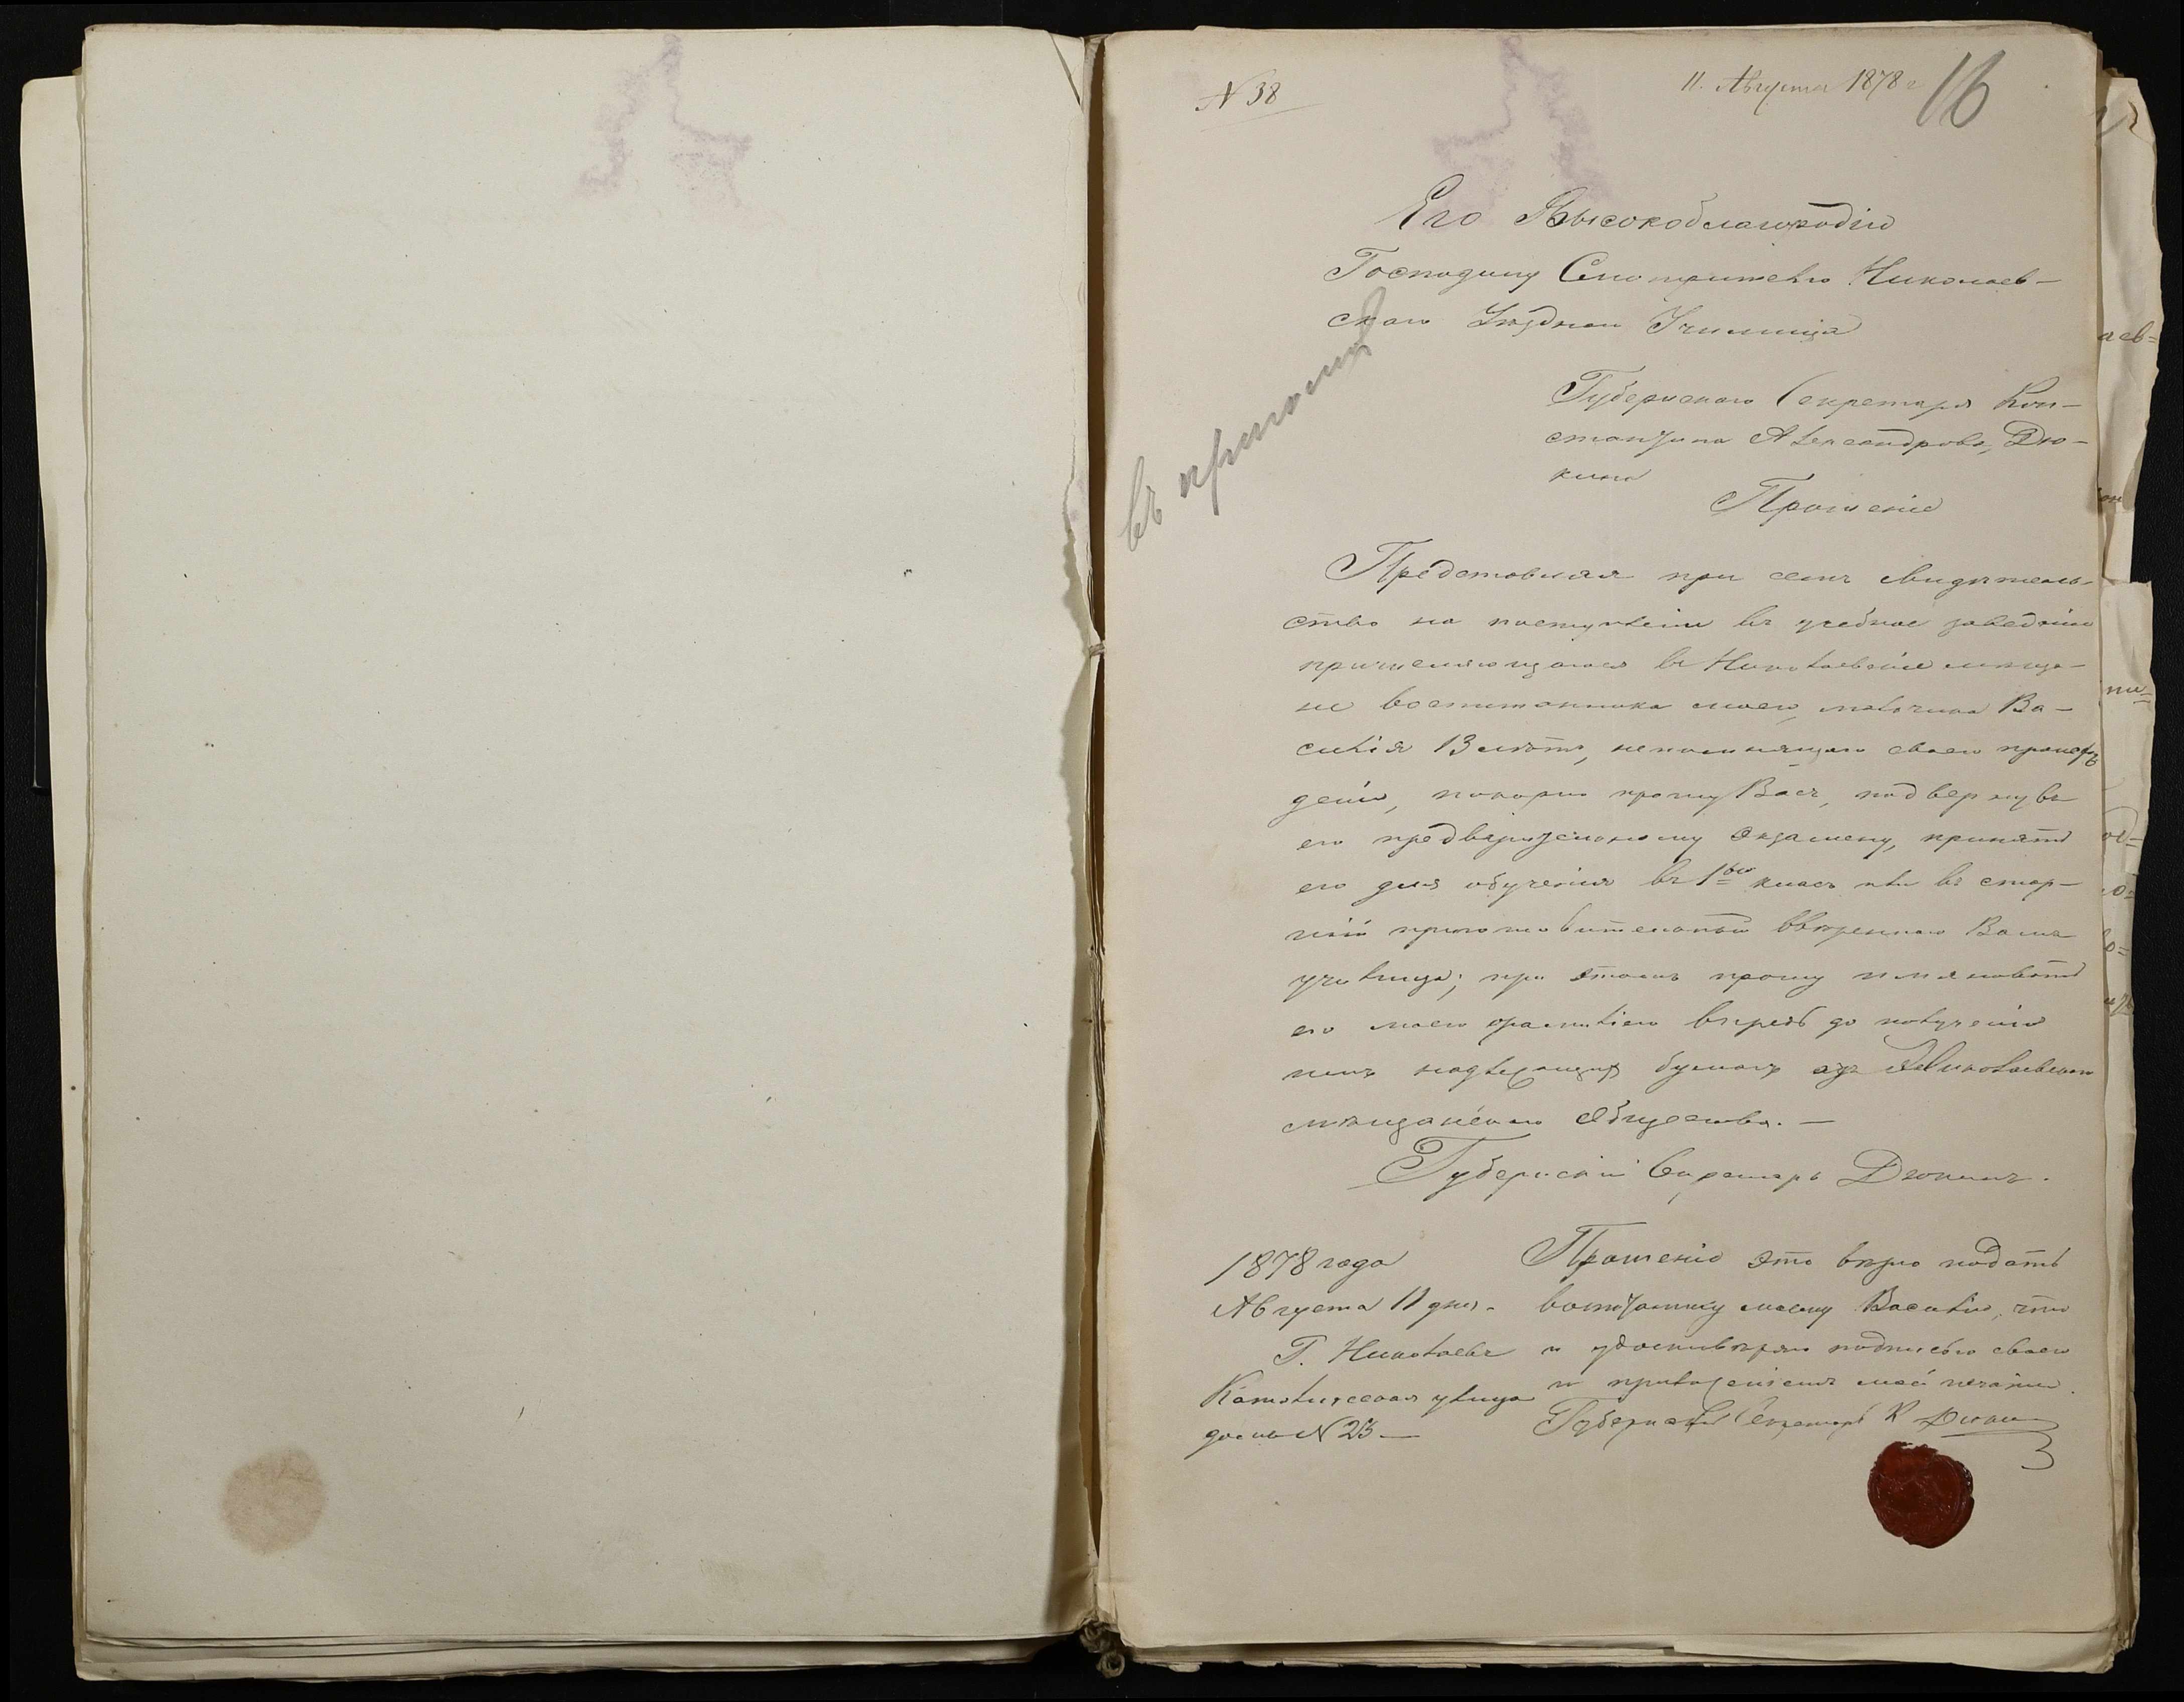 N 38
11. Августа 1878 г
16
Его Высокоблагородію
Господину Смотрителю Николаев-
скаго Уѣзднаго Училища
въ
Губернскаго Секретаря Кон-
стантина Александрова, Дю-
кина
Прошеніе
Представляя при семъ свидѣтель-
ство на поступленіе въ учебное заведеніе
причисляющагося въ Николаевскіе мѣща-
не воспитанника моего, мальчика Ва-
силія 13 лѣтъ, непомнящаго своего происхож
денія, покорно прошу Васъ, подвергнувъ
его предварительному экзамену, принять
его для обученія въ 1ый класъ или въ стар-
шій приготовительный ввѣреннаго Вамъ
училища; при этомъ прошу именовать
его моего фамиліею впредь до полученія
имъ надлежащихъ бумагъ отъ Николаевскаго
мѣщанскаго Общества. —
Губернскій Секретарь Дюкинъ.
1878 года
Августа 11 дня.
Г. Николаевъ
улица
домъ N 23 —
Прошеніе это вѣрю подать
воспитаннику моему Василію, что
и удостовѣряю подписью своею
и приложеніемъ моей печати.
Губернскій Секретарь К Дюкинъ